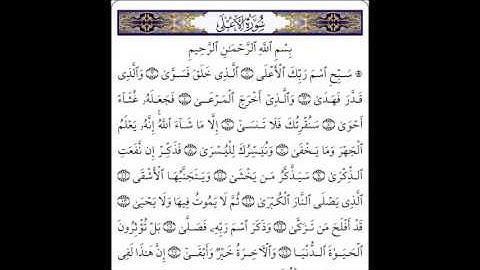 سُورَةُ الأَعْلَى
بِسْمِ اللَّهِ الرَّحْمَٰنِ الرَّحِيمِ
سَبِّحِ اسْمَ رَبِّكَ الْأَعْلَى الَّذِي خَلَقَ فَسَوَّىٰ وَالَّذِي
قَدَّرَ فَهَدَىٰ وَالَّذِي أَخْرَجَ الْمَرْعَىٰ فَجَعَلَهُ غُثَاءً
أَحْوَىٰ سَنُقْرِئُكَ فَلَا تَنسَىٰ إِلَّا مَا شَاءَ اللَّهُ إِنَّهُ يَعْلَمُ
الْجَهْرَ وَمَا يَخْفَىٰ وَنُيَسِّرُكَ لِلْيُسْرَىٰ فَذَكِّرْ إِن نَّفَعَتِ
الذِّكْرَىٰ سَيَذَّكَّرُ مَن يَخْشَىٰ وَيَتَجَنَّبُهَا الْأَشْقَى
الَّذِي يَصْلَى النَّارَ الْكُبْرَىٰ ثُمَّ لَا يَمُوتُ فِيهَا وَلَا يَحْيَىٰ
قَدْ أَفْلَحَ مَن تَزَكَّىٰ وَذَكَرَ اسْمَ رَبِّهِ فَصَلَّىٰ بَلْ تُؤْثِرُونَ
الْحَيَاةَ الدُّنْيَا وَالْآخِرَةُ خَيْرٌ وَأَبْقَىٰ إِنَّ هَٰذَا لَفِي